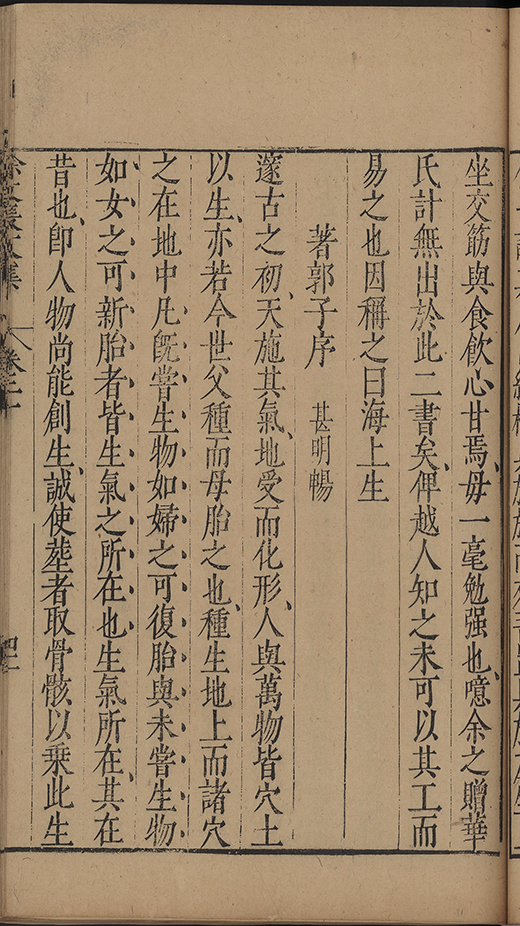 坐交筋與食飲心甘焉毋一毫勉强也噫余之贈華
氏計無出於此二書矣俾越人知之未可以其工而
易之也因稱之曰海上生
著郭子序 甚明暢
邃古之初天施其氣地受而化形人與萬物皆穴土
以生亦若今世父種而母胎之也種生地上而諸穴
之在地中凡旣嘗生物如婦之可復胎與未嘗生物
如女之可新胎者皆生氣之所在也生氣所在其在
昔也卽人物尚能創生誠使塟者取骨骸以乘此生
徐文長文集 卷二十 四二